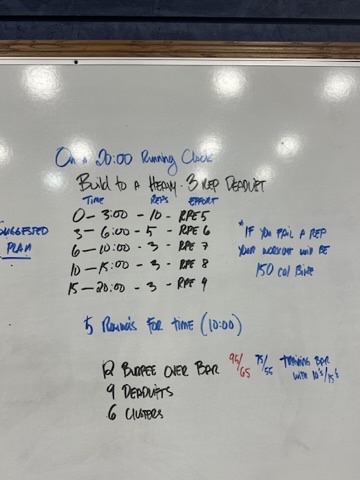 On a 20:00 Running Clock
Build to a Heavy 3 Rep Deadlift
TIME REPS EFFORT
0 - 3:00 - 10 - RPE 5
3 - 6:00 - 5 - RPE 6
6 - 10:00 - 3 - RPE 7
10 - 15:00 - 3 - RPE 8
15 - 20:00 - 3 - RPE 9
SUGGESTED
PLAN
* IF YOU FAIL A REP
YOUR WORKOUT WILL BE
150 CAL BIKE
5 ROUNDS FOR TIME (10:00)
12 BURPEE OVER BAR 95/65 75/55 TRAINING BAR
WITH 10's/15's
9 DEADLIFTS
6 CLUSTERS